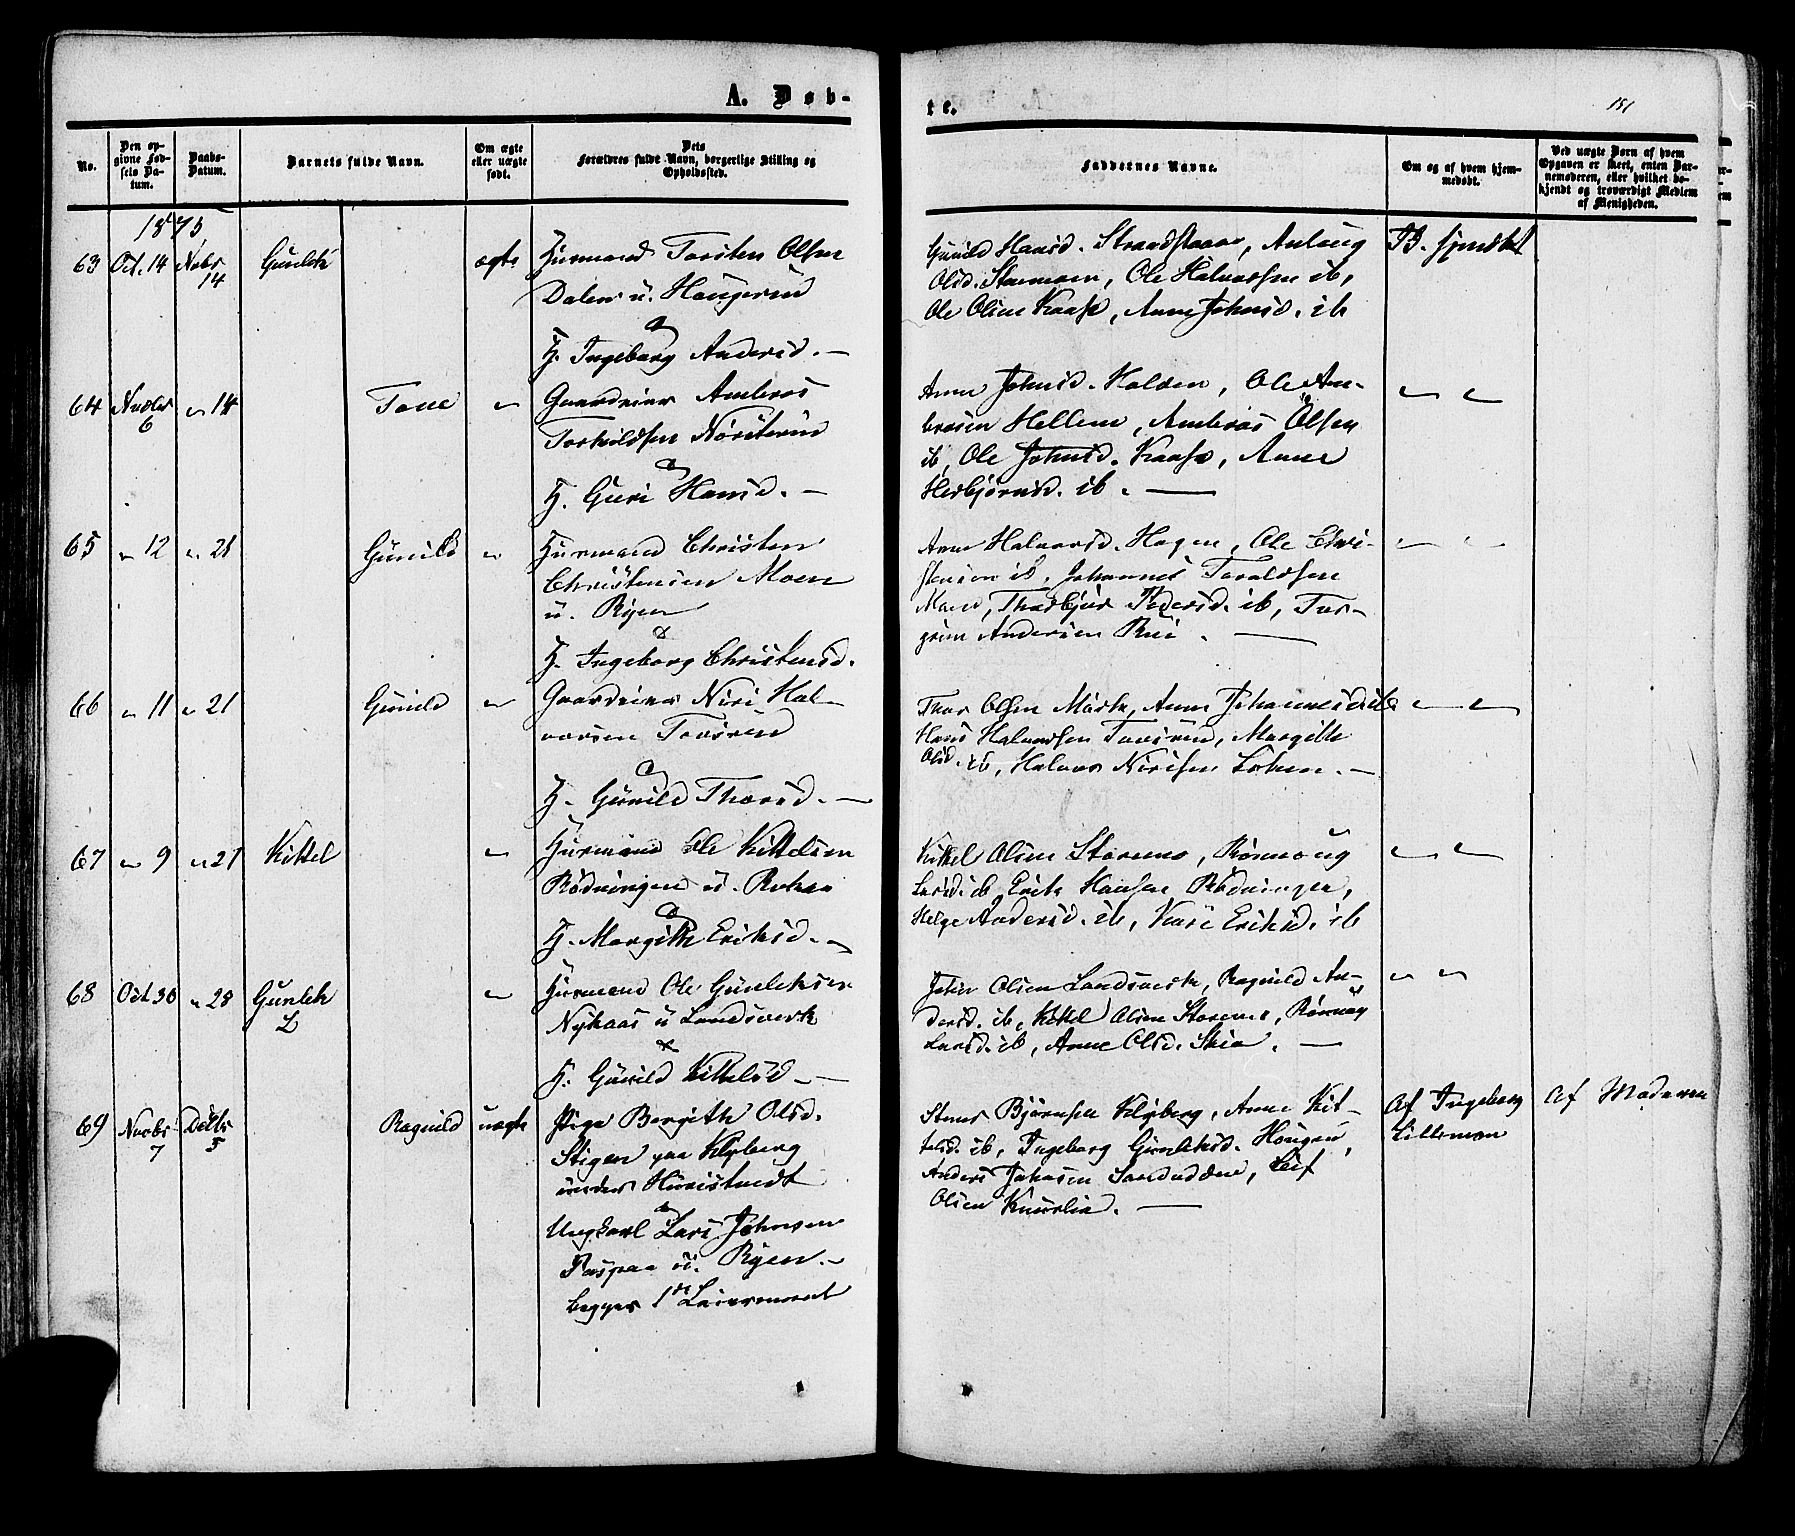 A. Døb-
te.
151
No.
Den op-
givne Fød-
sels Da-
tum.
Daabs-
Datum.
Barnets fulde Navn.
Om ægte
eller uægte
født.
Dets
Forældres fulde Navn, borgerlige Stilling og
Opholdssted.
Faddernes Navne.
Om og af hvem hjem-
medøbt.
Ved uægte Børn af hvem
Opgaven er skeet, enten Bar-
nemoderen, eller hvilket be-
kjendt og troværdigt Medlem
af Menigheden.
1875
63 Oct. 14 Novbr 14 Gunlek ægte Huusmand Torsten Olsen
Dalen u. Haugerud
&
H. Ingeborg Andersd. —
Gunild Hansd. Strandstaaen, Anlaug
Olsd. Staremoen, Ole Halvorsen ib,
Ole Olsen Kaasa, Anne Johnsd. ib
B. hjemdøbt
64 Novbr 6 " 14 Tone " Gaardeier Ambros
Torkildsen Nørsterud
&
H. Guri Hansd. —
Anne Johnsd. Halden, Ole Am-
brosen Hellem, Ambros Olsen
ib, Ole Johnsd. Kaasa, Anne
Herbjørnsd. ib. —
" "
65 " 12 " 21 Gunild " Huusmand Christen
Christensen Moen
u. Ryen
&
H. Ingeborg Christensd.
Anne Halvorsd. Hagen, Ole Chri-
stensen ib, Johannes Taraldsen
Moen, Thorbjør Pedersd. ib, Tor-
grim Andersen Rui. —
" "
66 " 11 " 21 Gunild " Gaardeier Niri Hal-
vorsen Tovsrud
&
H. Gunild Thorsd. —
Thor Olsen Mørk, Anne Johannesd. ib
Hans Halvorsen Tovsrud, Margith
Olsd. ib, Halvor Nirisen Loken. —
" "
67 " 9 " 21 Kittel " Huusmand Ole Kittelsen
Rødningen u.
&
H. Margith Eriksd. —
Kittel Olsen Staremo, Rønnoug
Larsd. ib Erik Hansen Rødningen,
Helge Andersd. ib, Kari Eriksd. ib
" "
68 Oct 30 " 28 Gunlek " Huusmand Ole Gunleksen
Nykaas u Landsverk
&
H. Gunild Kittelsd —
Olsen Landsverk, Ragnild An-
dersd. ib, Kittel Olsen Staremo, Rønnoug
Larsd. ib, Anne Olsd. —
" "
69 Novbr 7 Decbr 5 Ragnild uægte Pige Bergith Olsd.
Stigen paa Klyberg
under Huustvedt
&
Ungkarl Lars Johnsen
u. Ryen. —
begges 1ste Leiermaal
Stener Bjørnsen Klyberg, Anne Kit-
telsd. ib, Ingeborg Gunleksd. Haugen,
Anders Johnsen Sanduddene, Leif
Olsen —
Af Ingeborg
Lillemoen
Af Moderen